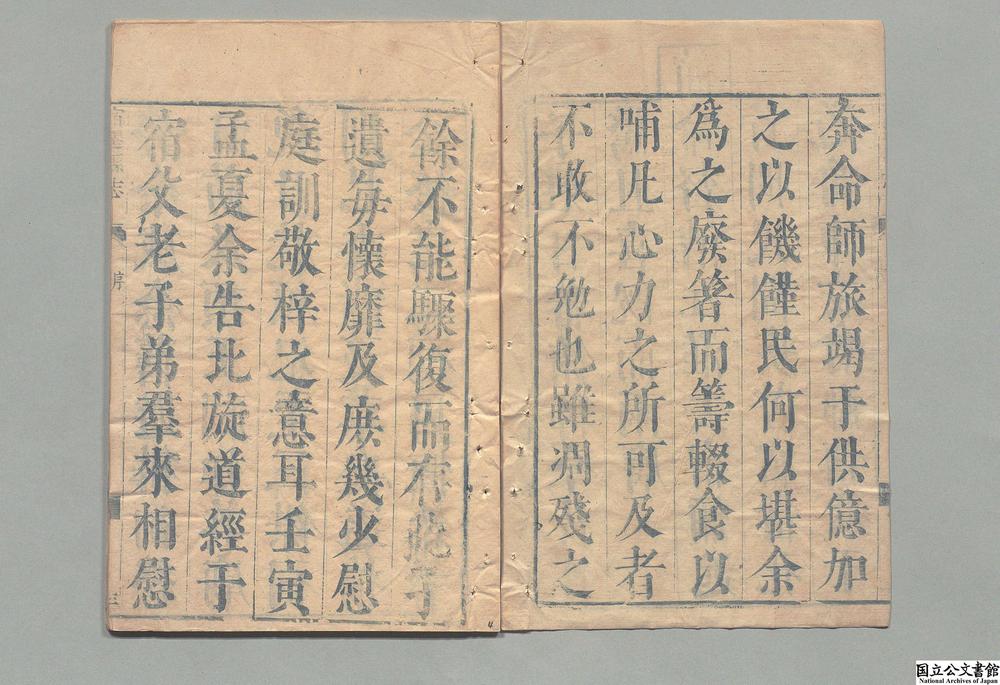 奔命師旅竭于供億加
之以饑饉民何以堪余
爲之廢箸而籌輟食以
哺凡心力之所可及者
不敢不勉也雖凋殘之
餘不能驟復而布此于
遺每懷靡及庶幾少慰
庭訓敬梓之意耳壬寅
孟夏余告比旋道經于
宿父老子弟羣來相慰
国立公文書館
National Archives of Japan